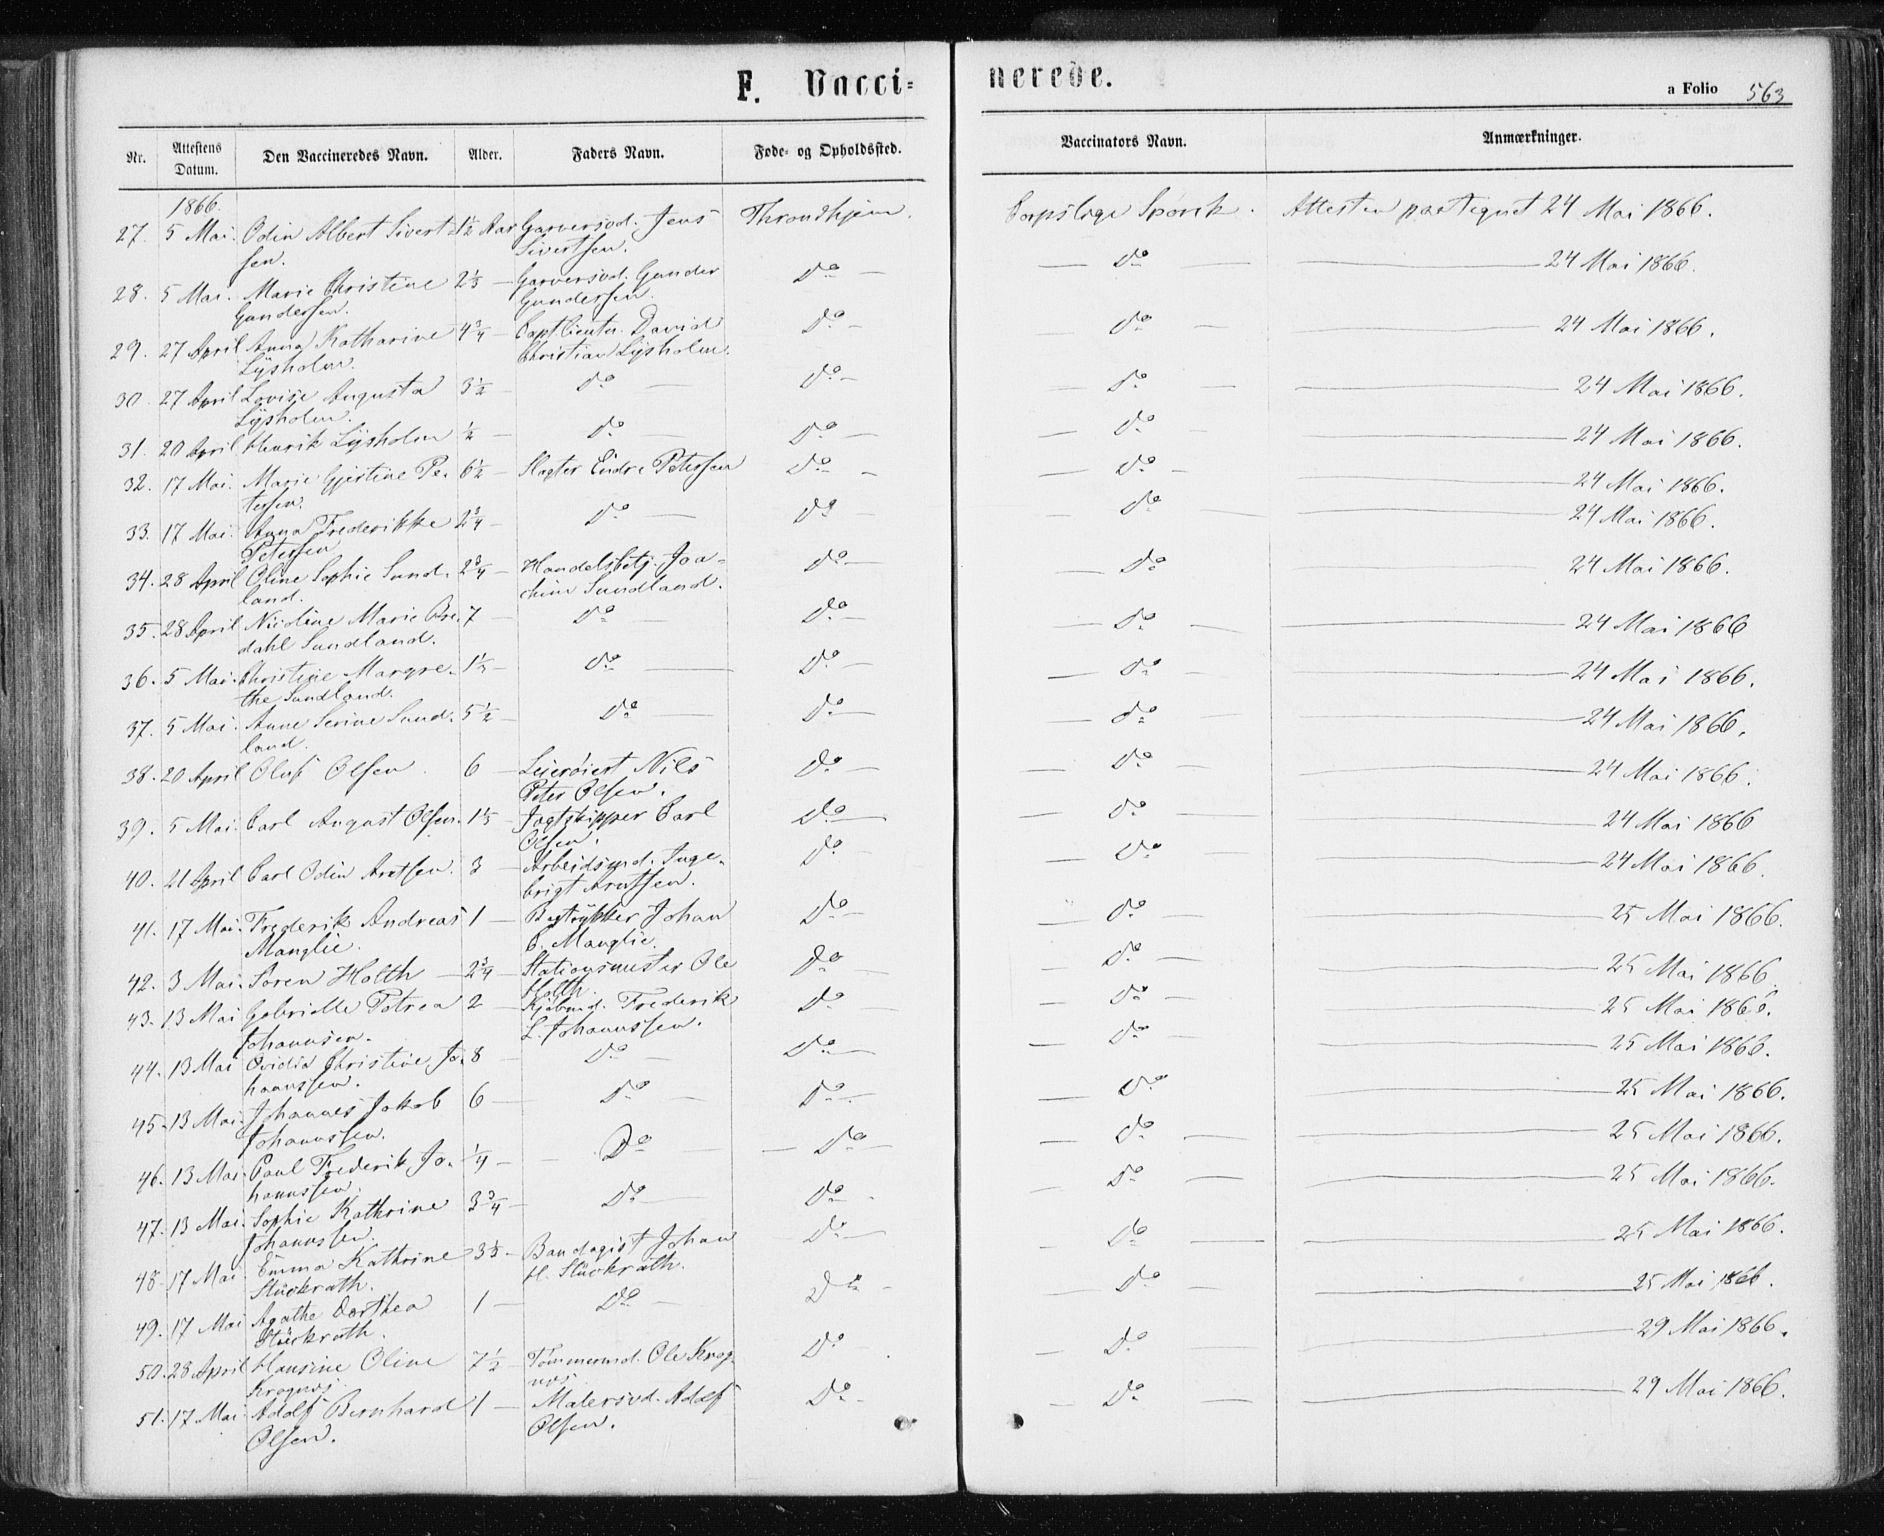 F. Vacci=
nerede.
a Folio 563
Nr. Attestens Datum. Den Vaccineredes Navn. Alder. Faders Navn. Føde- og Opholdssted. Vaccinators Navn. Anmærkninger.
1866.
27. 5 Mai. Odin Albert Sivert- 1½ Aar Garversvd. Jens Throndhjem. Corpslæge Spørck. Attesten paategnet 24 Mai 1866.
sen. Sivertsen.
28. 5 Mai. Marie Christine 2⅓ — Garversvd. Gunder Do — — Do — — 24 Mai 1866.
Gundersen. Gundersen.
29. 27 April Anna Katharine 4¾ — Captlieutn. David Do — — Do — — 24 Mai 1866.
Lysholm. Christian Lysholm.
30. 27 April Lovise Augusta 3½ Do — Do — — Do — — 24 Mai 1866.
Lysholm.
31. 20 April Henrik Lysholm ½ — Do — Do — — Do — — 24 Mai 1866.
32. 17 Mai. Marie Gjestine Pe- 6½ — Slagter Endre Petersen Do — — Do — — 24 Mai 1866.
tersen.
33. 17 Mai. Anna Frederikke 2¾ — Do — Do — — Do — — 24 Mai 1866.
Petersen
34. 28 April Oline Sophie Sund- 2¾ — Handelsbetj. Joa- Do — — Do — — 24 Mai 1866.
land. chim Sundland.
35. 28 April Nicoline Marie Bre- 7 — Do — Do — — Do — — 24 Mai 1866
dahl Sundland.
36. 5 Mai. Christine Margre- 1½ — Do — Do — — Do — — 24 Mai 1866.
the Sundland.
37. 5 Mai. Anne Serine Sund- 5½ — Do — Do — — Do — — 24 Mai 1866.
land.
38. 20 April Oluf Olsen. 6 — Leierøiert Nils Do — — Do — — 24 Mai 1866.
Peter Olsen.
39. 5 Mai. Carl August Olsen. 1⅓ — Jagtskipper Carl Do — — Do — — 24 Mai 1866
Olsen.
40. 21 April Carl Odin Arntsen. 3 — Arbeidsmd. Inge- Do — — Do — — 24 Mai 1866.
brigt Arntsen.
41. 17 Mai. Frederik Andreas 1 — Bogtrykker Johan Do — — Do — — 25 Mai 1866.
Manglie. C. Manglie.
42. 3 Mai. Søren Holth — 2¾ — Stationsmester Ole Do — — Do — — 25 Mai 1866.
Holth.
43. 13 Mai Gabrielle Petrea 2 — Kjøbmd. Frederik Do — — Do — — 25 Mai 1866.
Johannsen. L. Johannssen.
44. 13 Mai Ovidia Christine Jo- 8 — Do — Do — — Do — — 25 Mai 1866.
hannssen.
45. 13 Mai. Johannes Jakob 6 — Do — Do — — Do — 25 Mai 1866.
Johannssen.
46. 13 Mai. Paul Frederik Jo- ¼ — — Do — — Do — — Do — — 25 Mai 1866.
hannssen.
47. 13 Mai. Sophie Kathrine 3¾ — Do — Do — — Do — — 25 Mai 1866.
Johannssen.
48. 17 Mai. Emma Kathrine 3⅓ — Bandagist Johan Do — — Do — — 25 Mai 1866.
Stückrath. H. Stückrath.
49. 17 Mai Agathe Dorthea 1 — Do — Do — — Do — — 25 Mai 1866.
Stückrath.
50. 28 April Hansine Oline 7½ — Tømmermd. Ole Krog- Do — — Do — — 29 Mai 1866.
Krognæs. næs.
51. 17 Mai Adolf Bernhard 1 — Malersvd. Adolf Do — — Do — — 29 Mai 1866.
Olsen. Olsen.